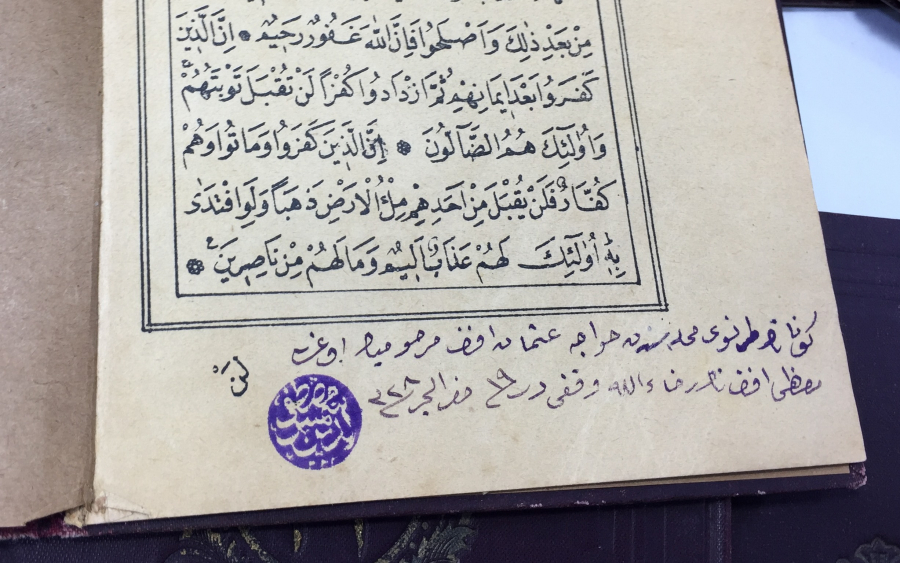 مِنْ بَعْدِ ذٰلِكَ وَاَصْلَحُوا فَاِنَّ اللّٰهَ غَفُورٌ رَحِيمٌ ❁ اِنَّ الَّذِينَ
كَفَرُوا بَعْدَ اِيمَانِهِمْ ثُمَّ ازْدَادُوا كُفْرًا لَنْ تُقْبَلَ تَوْبَتُهُمْ
وَاُولٰئِكَ هُمُ الضَّالُّونَ ❁ اِنَّ الَّذِينَ كَفَرُوا وَمَاتُوا وَهُمْ
كُفَّارٌ فَلَنْ يُقْبَلَ مِنْ اَحَدِهِمْ مِلْءُ الْاَرْضِ ذَهَبًا وَلَوِ افْتَدٰى
بِهِ اُولٰئِكَ لَهُمْ عَذَابٌ اَلِيمٌ وَمَا لَهُمْ مِنْ نَاصِرِينَ ❁
محله سنده خواجه عثمان افندى مرحومك اوغلى
لَنْ
مصطفى افندينك رضاء الله وقفى در ١٩